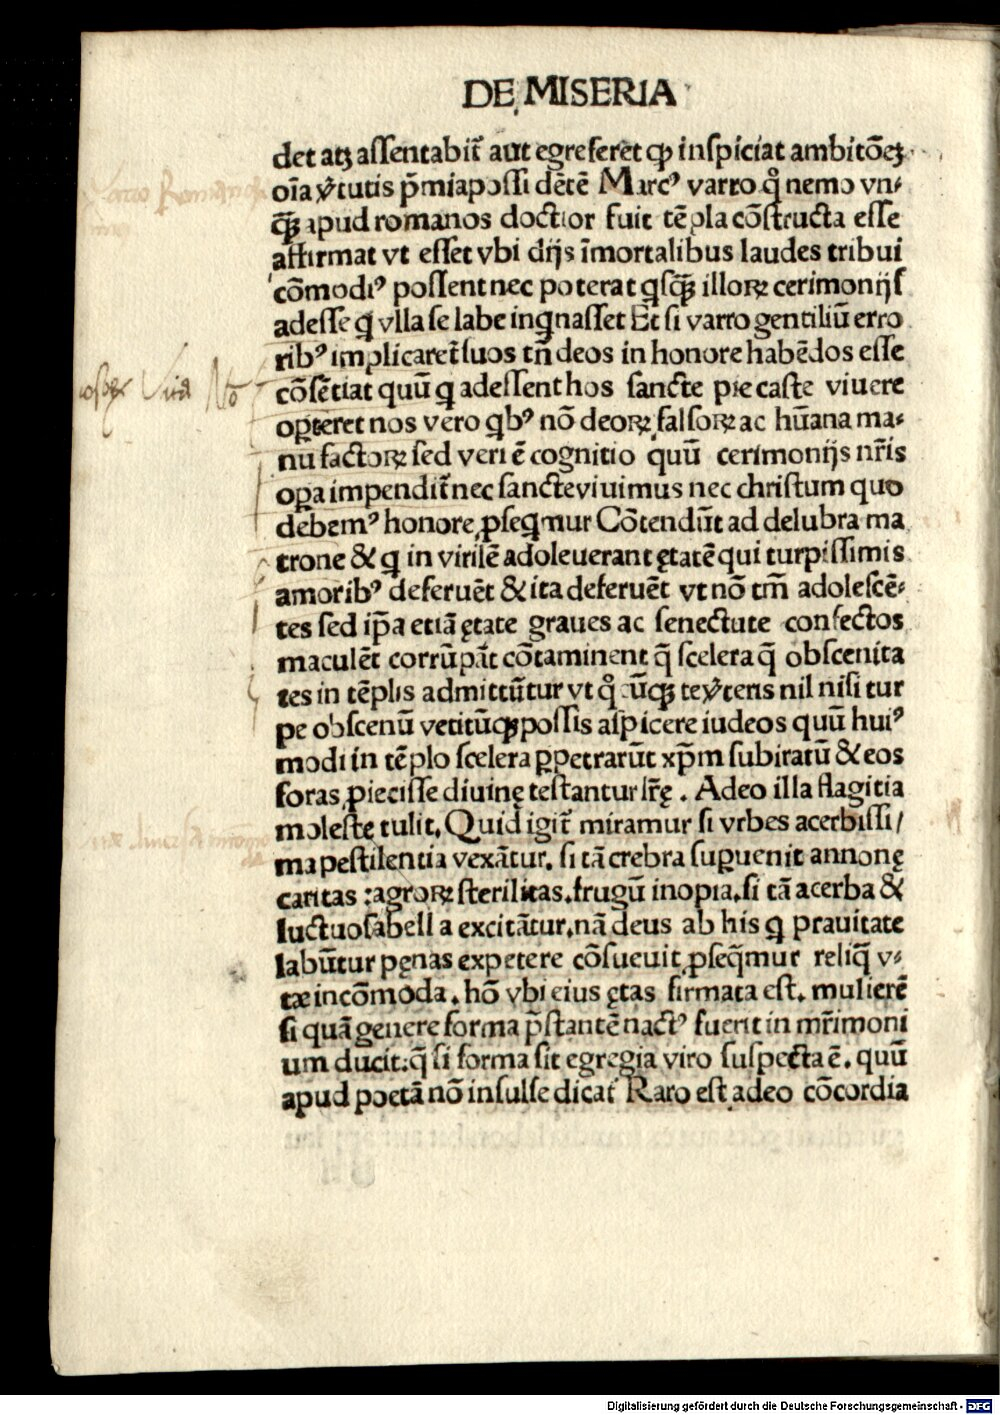 DE MISERIA
det atqꝫ assentabit̃ aut egreferet ꝙ inspiciat ambitõeꝫ
oĩa v̾tutis p̃miapossidẽtẽ Marcꝰ varro qͦ nemo vn⸗
qͣꝫ apud romanos doctior fuit tẽpla cõstructa esse
affirmat vt esset vbi dijs ĩmortalibus laudes tribui
cõmodiꝰ possent nec poterat qͥsqͣꝫ illorꝝ cerimonijs
adesse qͥ vlla se labe inqͥnasset Et si varro gentiliũ erro
ribꝰ implicaret̃ suos tñ deos in honore habẽdos esse
cõsẽtiat quũ qͥ adessent hos sancte pie caste viuere
oꝑteret nos vero qͥbꝰ nõ deorꝝ falsorꝝ ac hũana ma⸗
nu factorꝝ sed veri ẽ cognitio quũ cerimonijs nr̃is
oꝑa impendit̃ nec sancte viuimus nec christum quo
debemꝰ honore ꝓseqͥmur Cõtendũt ad delubra ma
trone & qͥ in virilẽ adoleuerant ętatẽ qui turpissimis
amoribꝰ deferuẽt & ita deferuẽt vt nõ tm̃ adolescẽ⸗
tes sed ip̃a etiã ętate graues ac senectute confectos
maculẽt corrũpãt cõtaminent q̃ scelera q̃ obscenita
tes in tẽplis admittũtur vt qͦcũqꝫ te v̾teris nil nisi tur
pe obscenũ vetitũqꝫ possis aspicere iudeos quũ huiꝰ
modi in tẽplo scelera ꝑpetrarũt xp̃m subiratũ & eos
foras ꝓiecisse diuinę testantur lr̃ę . Adeo illa flagitia
moleste tulit. Quid igit̃ miramur si vrbes acerbissi/
ma pestilentia vexãtur. si tã crebra suꝑuenit annonę
caritas : agrorꝝ sterilitas. frugũ inopia. si tã acerba &
luctuosa bella excitãtur. nã deus ab his qͥ prauitate
labũtur pęnas expetere cõsueuit ꝓseqͣmur reliqͣ v⸗
tæ incõmoda. hõ vbi eius ętas firmata est. mulierẽ
si quã genere forma p̃stantẽ nactꝰ fuerit in mr̃imoni
um ducit. q̃ si forma sit egregia viro suspecta ẽ. quũ
apud poetã nõ insulse dicat̃ Raro est adeo cõcordia
Vita No
Digitalisierung gefördert durch die Deutsche Forschungsgemeinschaft - DFG